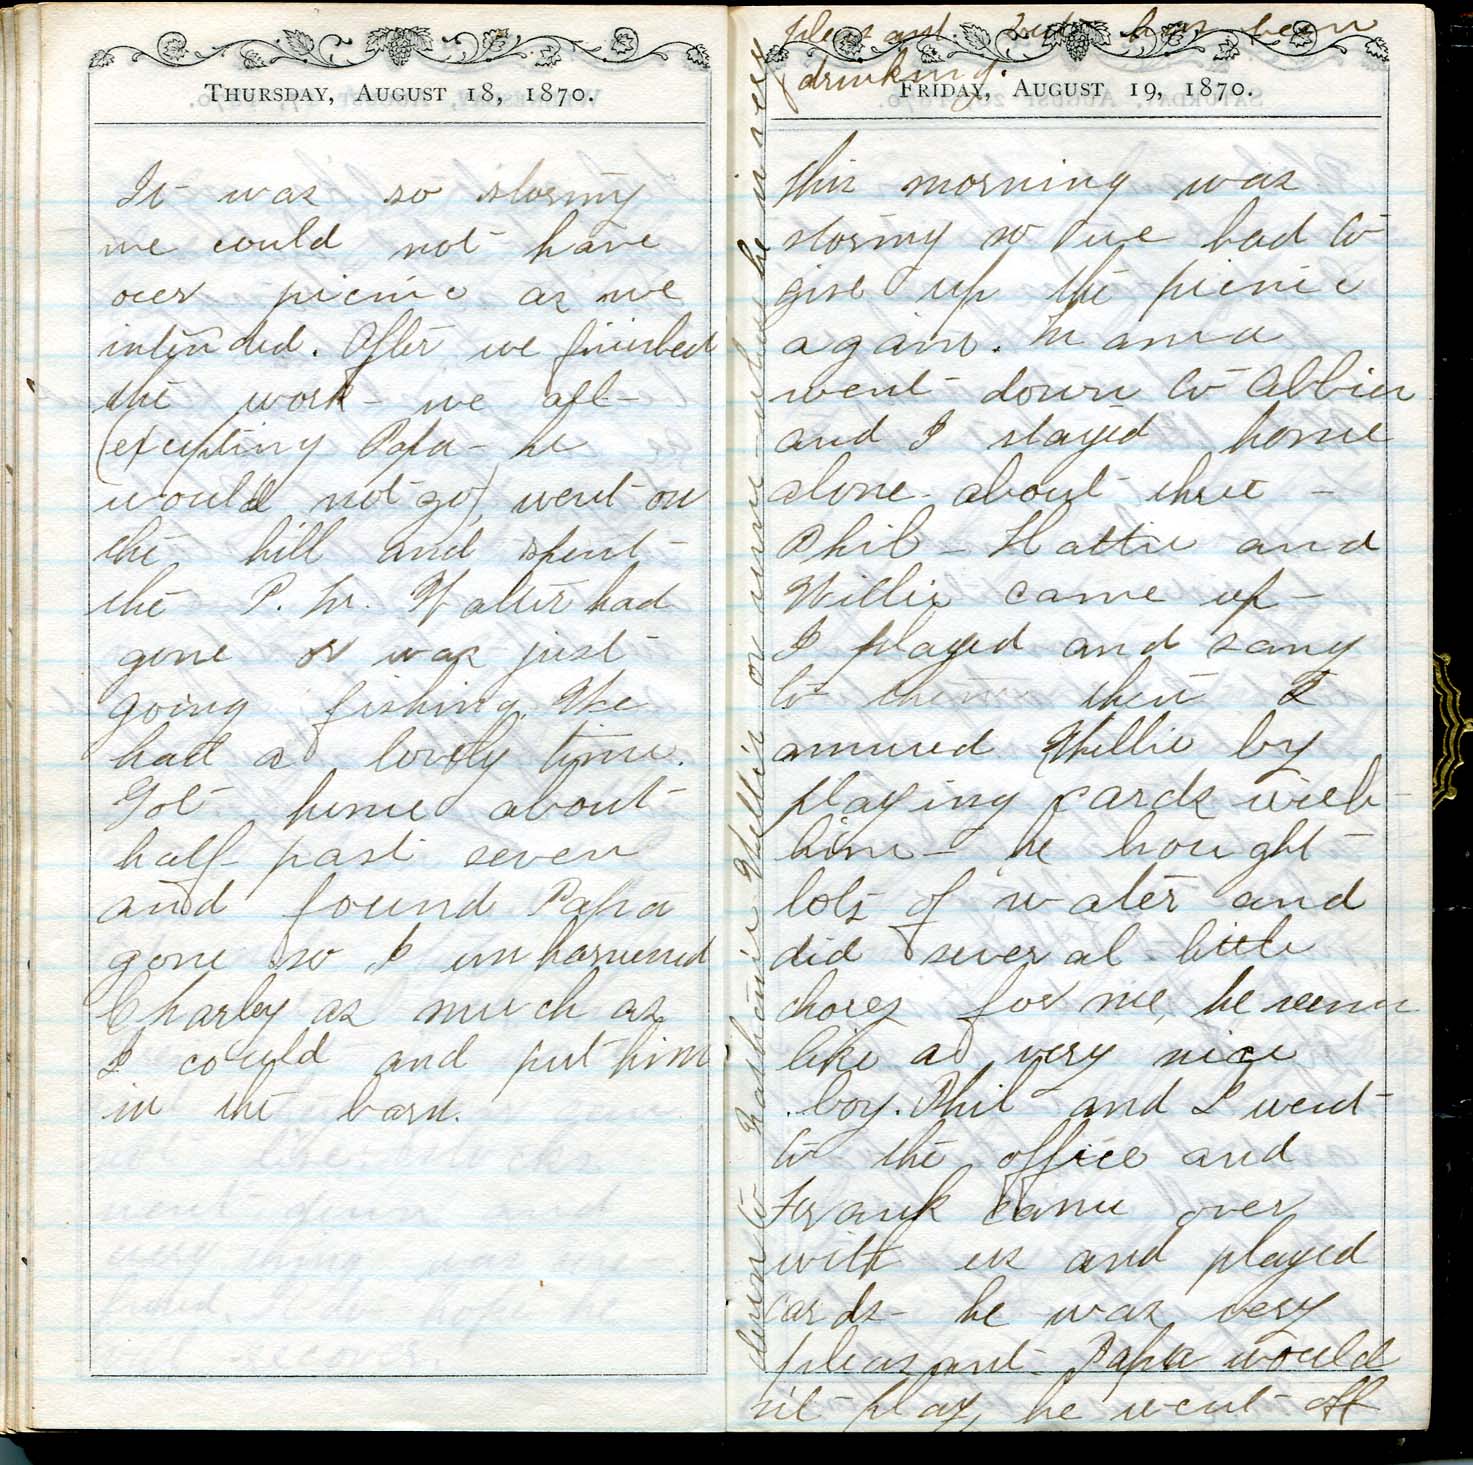 THURSDAY, AUGUST 18, 1870.
It was so stormy
we could not have
over picnic as we
intended. After we finished
the work - we all -
(excepting Papa - he
would not go) went on
the hill and spent -
the P. M. Walter had
gone or was just
going fishing. We
had a lovely time.
Got home about
half past seven
and found Papa
gone so I unharnessed
Charley as much as
I could and put him
in the barn.
FRIDAY, AUGUST 19, 1870.
this morning was
stormy so we had to
give up the picnic
again. Mama
went down to Abbies
and I stayed home
alone - about three -
Phil - Hattie and
Willie came up -
I played and sang
to them then I
amused Willie by
playing cards with
him - he brought
lots of water and
did several little
chores for me, he seems
like a very nice
boy. Phil and I went
to the office and
Frank came over
with us and played
cards - he was very
pleasant - Papa would
n't play, he went off
down to Nillis on wine - when he is very
pleasant and has been
drinking.